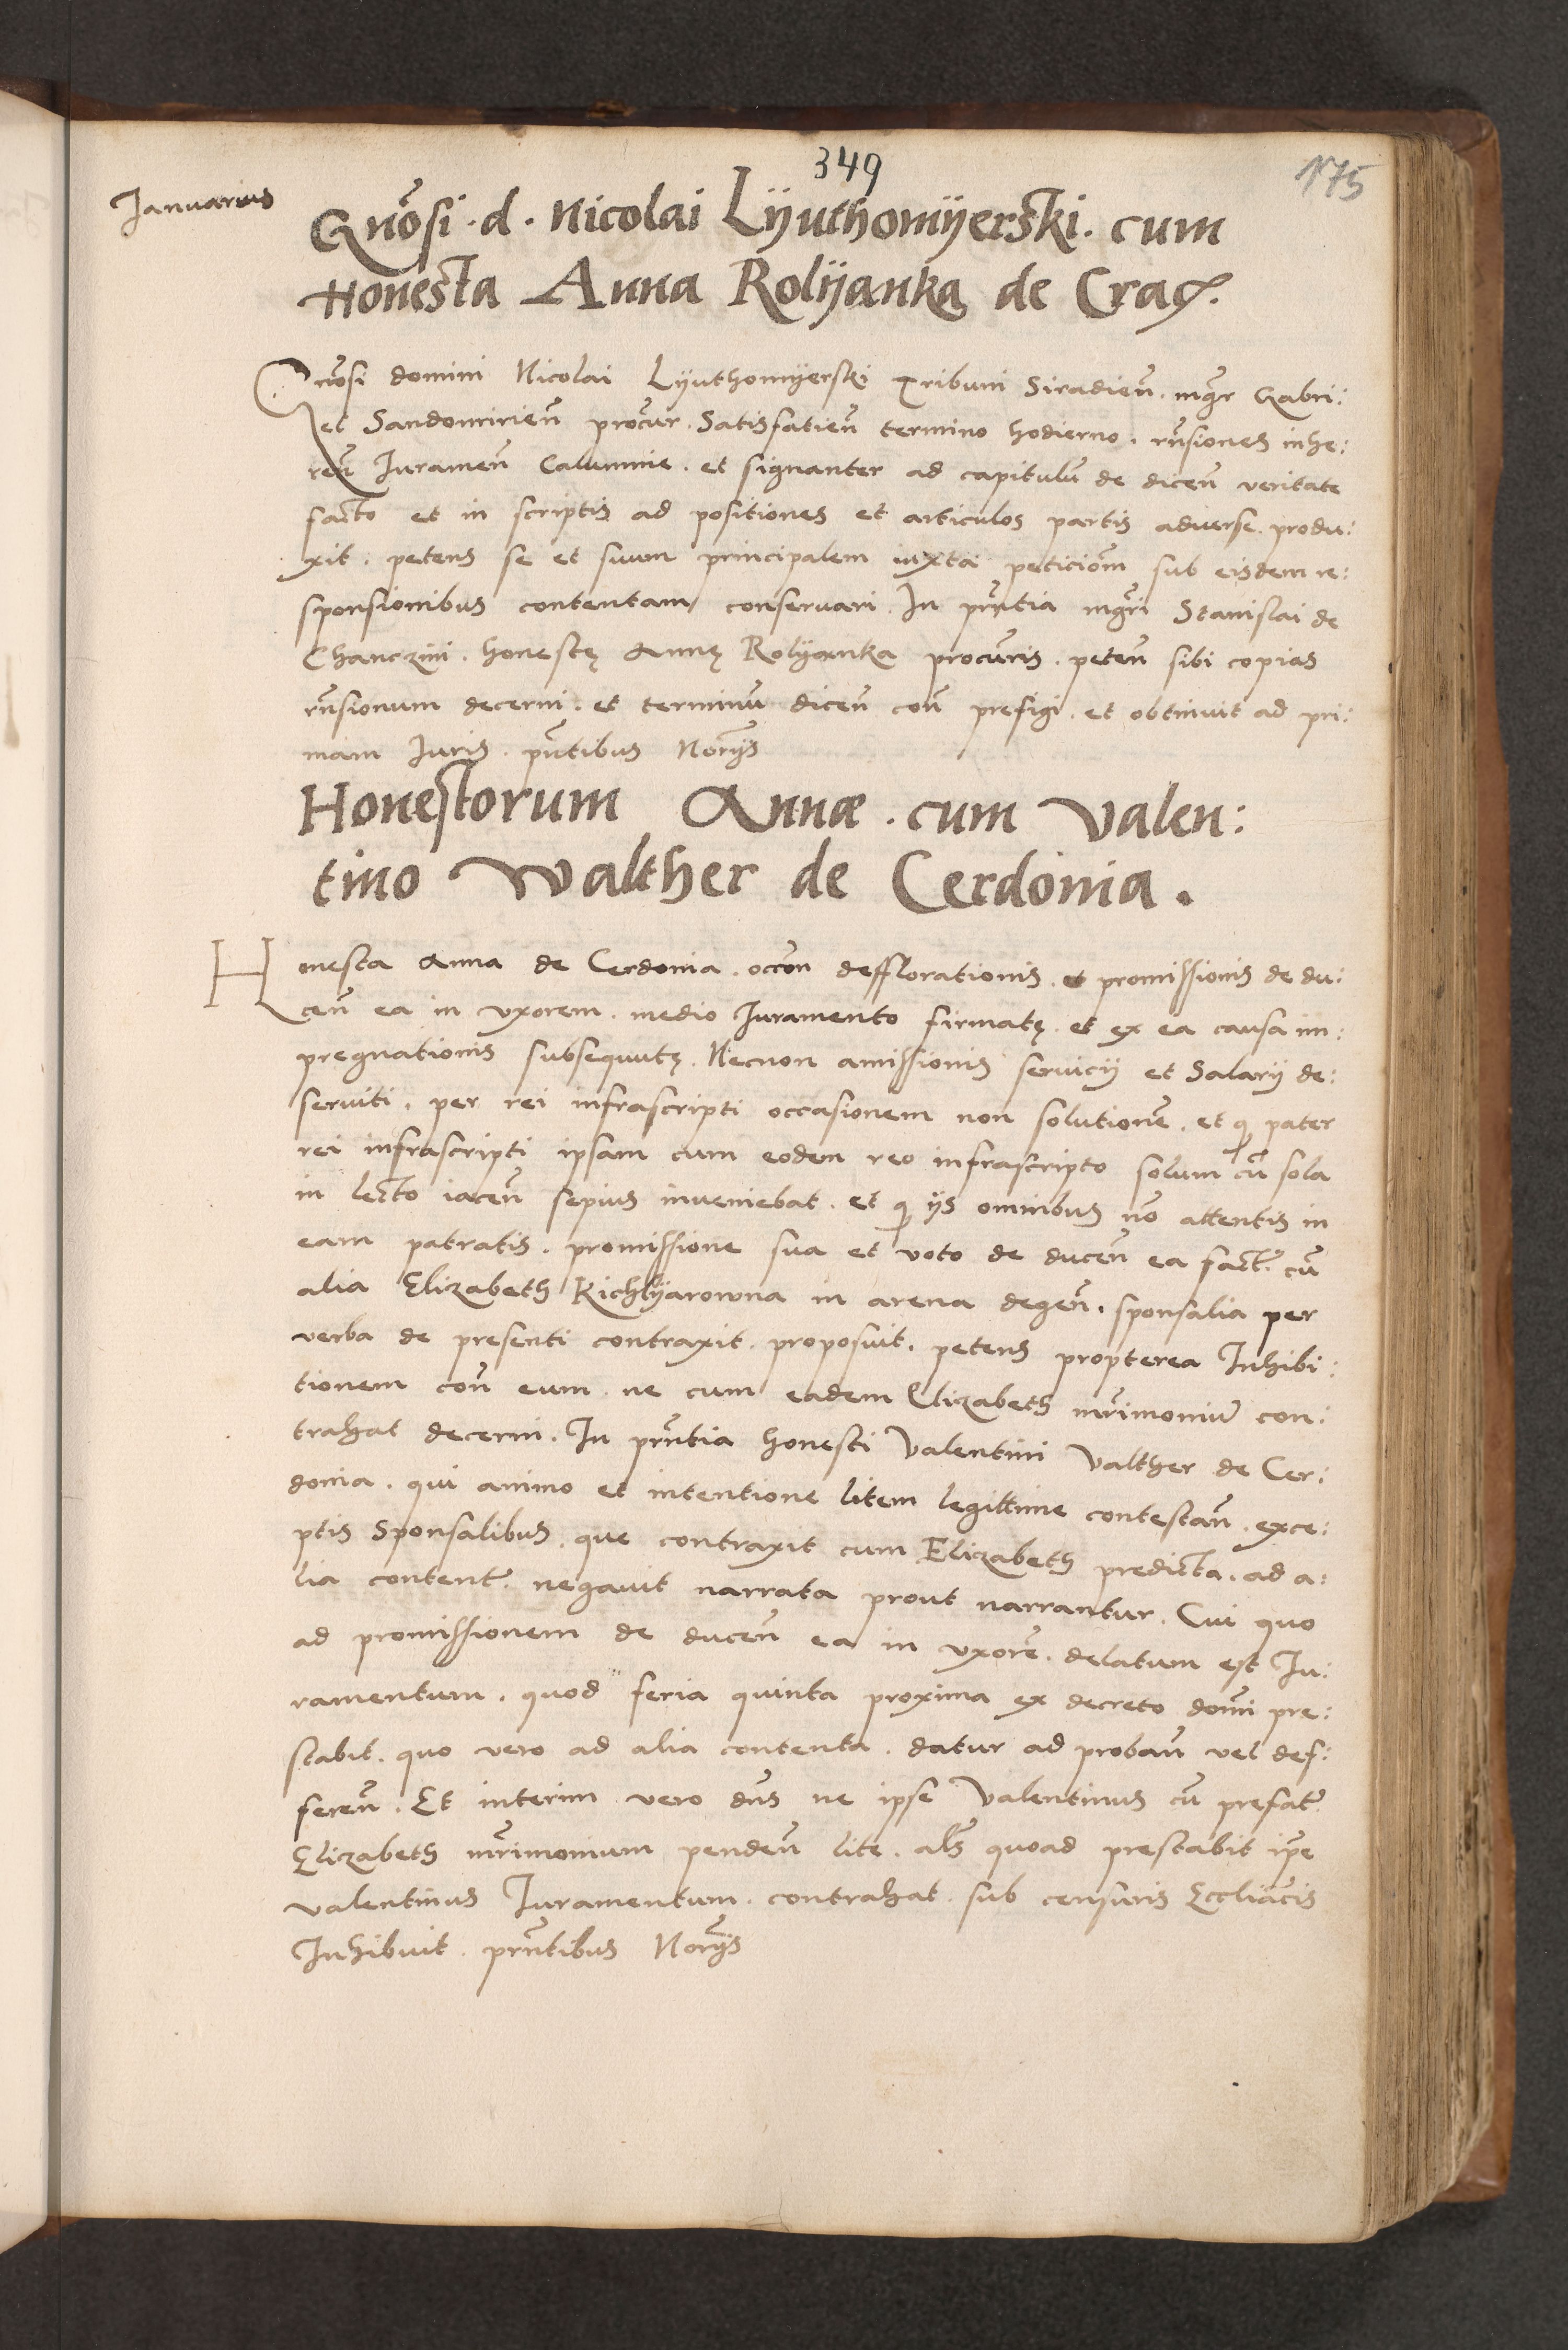 349
175
Januarius
Gnōsi · d · Nicolai Lÿuthomÿerski · cum
Honesta Anna Rolÿanka de Crac.
Gnōsi domini Nicolai Lÿuthomÿerski Tribuni Siradieñ . mgr̄ Gabri:
el Sandomirieñ procur̄ . Satisfatieñ termino hodierno . rñsiones inhe:
reñ Iurameñ Calumnie . et signanter ad capitulū de diceñ veritate
facto et in scriptis ad positiones et articulos partis aduerse produ:
xit . petens se et suum principalem iuxta peticiōm sub eisdem re:
sponsionibus contentam conseruari . In prñtia mgr̄i Stanislai de
Chanczini . honestę Annę Rolÿanka procur̄is . peteñ sibi copias
rñsionum decerni . et terminū diceñ coñ prefigi . et obtinuit ad pri:
mam Iuris . pñtibus Norÿs
Honestorum Annæ . cum Valen:
tino Walther de Cerdonia .
Honesta Anna de Cerdonia . occōn defflorationis . et promissionis de du:
ceñ ea in vxorem . medio Iuramento firmatę . et ex ea causa im:
pregnationis subsequutę . Necnon amissionis seruicij et Salarij de:
seruiti . per rei infrascripti occasionem non solutionē . et q̄ pater
rei infrascripti ipsam cum eodem reo infrascripto solum cū sola
in lecto iaceñ sepius inueniebat . et q̄ ijs omnibus nō attentis in
eam patratis . promissione sua et voto de duceñ ea fact̄ . cū
alia Elizabeth Kichlÿarowna in arena degeñ . sponsalia per
verba de presenti contraxit . proposuit . petens propterea Inhibi:
tionem coñ eum . ne cum eadem Elizabeth mr̄imoniū con:
trahat decerni . In prñtia honesti Valentini Valther de Cer:
donia . qui animo et intentione litem legittime contestañ . exce:
ptis Sponsalibus . que contraxit cum Elizabeth predicta . ad a:
lia content̄ . negauit narrata prout narrantur . Cui quo
ad promissionem de duceñ ea in vxorē . delatum est Iu:
ramentum . quod feria quinta proxima ex decreto domī pre:
stabit . quo vero ad alia contenta . datur ad probañ vel def:
fereñ . Et interim vero dñs ne ipse Valentinus cū prefat̄
Elizabeth mr̄imonium pendeñ lite . als̄ quoad prestabit ip̄e
Valentinus Iuramentum . contrahat . sub censuris Eccliācis
Inhibuit . prñtibus Norÿs